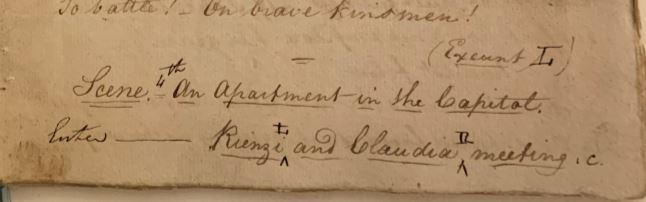 To battle! - On brave kinsmen!
(Exeunt L)
Scene. 4th An Apartment in the Capitol.
Enter —— Rienzi L and Claudia R meeting. c.